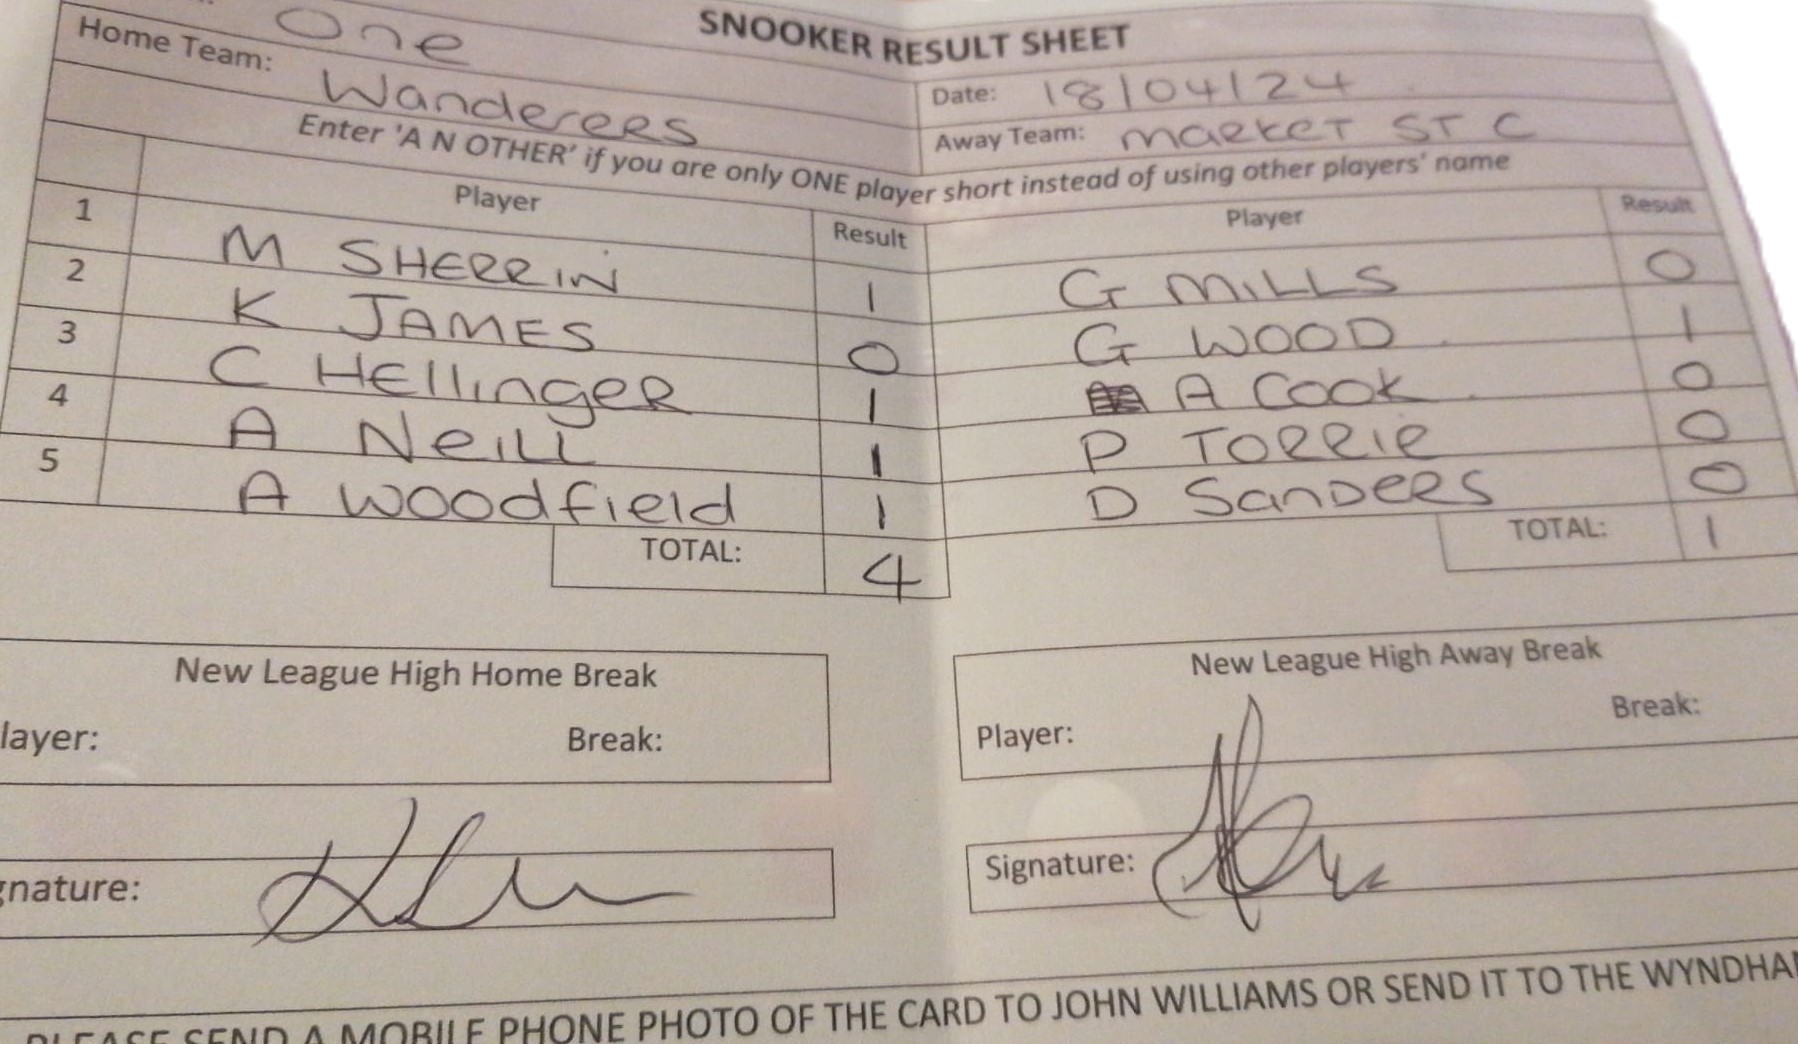 One
SNOOKER RESULT SHEET
Home Team: Wanderers
Date: 18/04/24
Away Team: MARKET ST C
Enter 'A N OTHER' if you are only ONE player short instead of using other players' name
Player Result Player Result
1 M SHERRIN 1 G MILLS 0
2 K JAMES 0 G WOOD 1
3 C HEllingER 1 A COOK 0
4 A NeiLL 1 P TORRIE 0
5 A Woodfield 1 D SANDERS 0
TOTAL: 4 TOTAL: 1
New League High Home Break New League High Away Break
layer: Break: Player: Break:
gnature: Signature:
PLEASE SEND A MOBILE PHONE PHOTO OF THE CARD TO JOHN WILLIAMS OR SEND IT TO THE WYNDHA